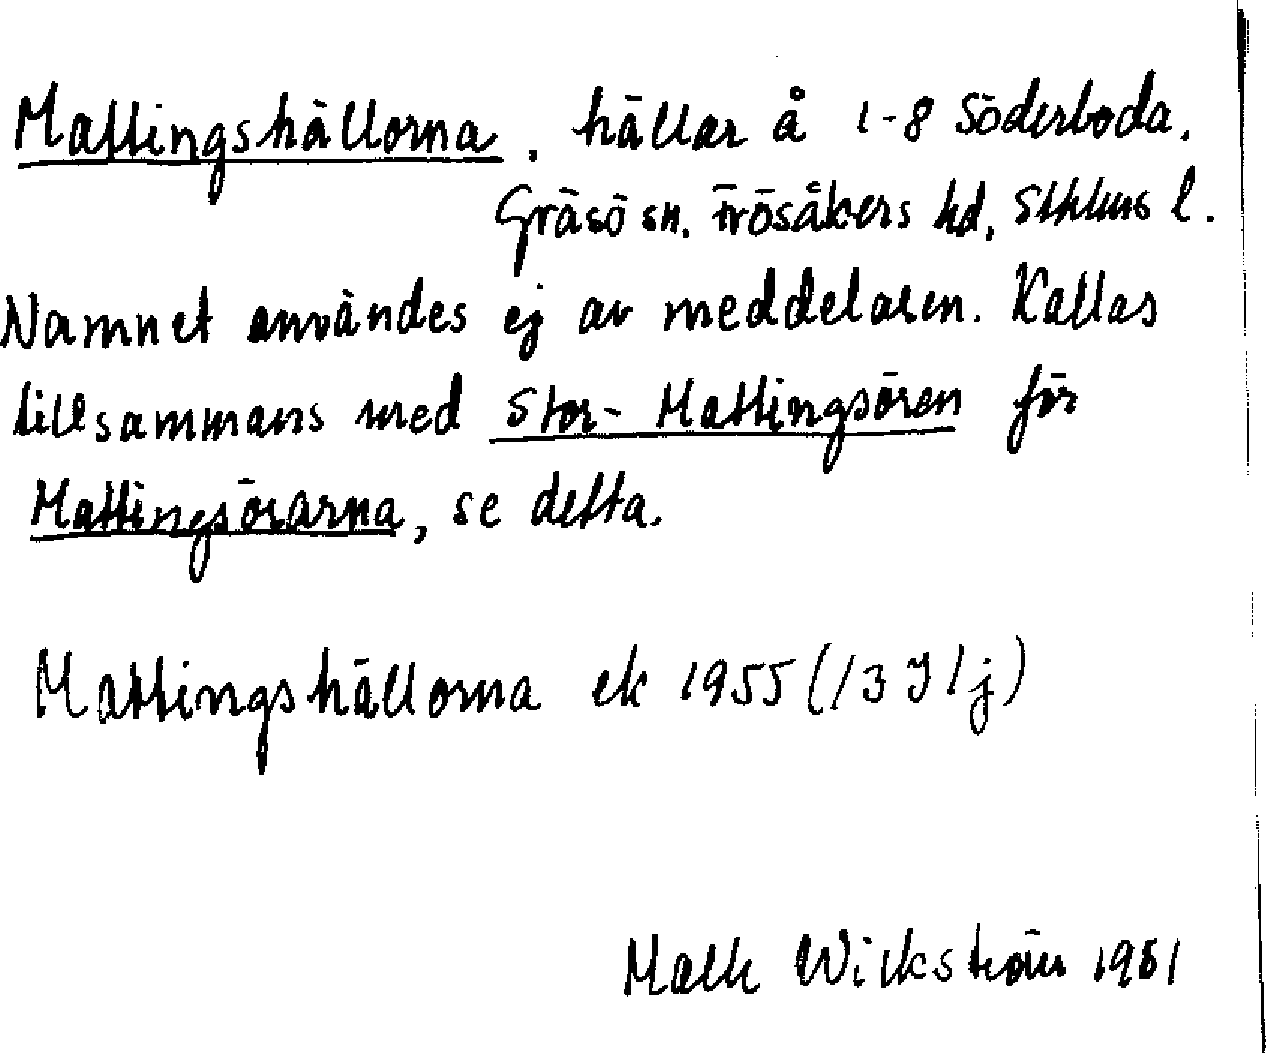 Mattingshällorna, hällar å 1-8 Söderboda.
Gräsö sn. Frösåkers hd, Sthlms l.
Namnet användes ej av meddelaren. Kallas
tillsammans med Stor-Mattingsören för
Mattingsörarna, se detta.
Mattingshällorna ek 1955 (13 I 1 j)
Wikström